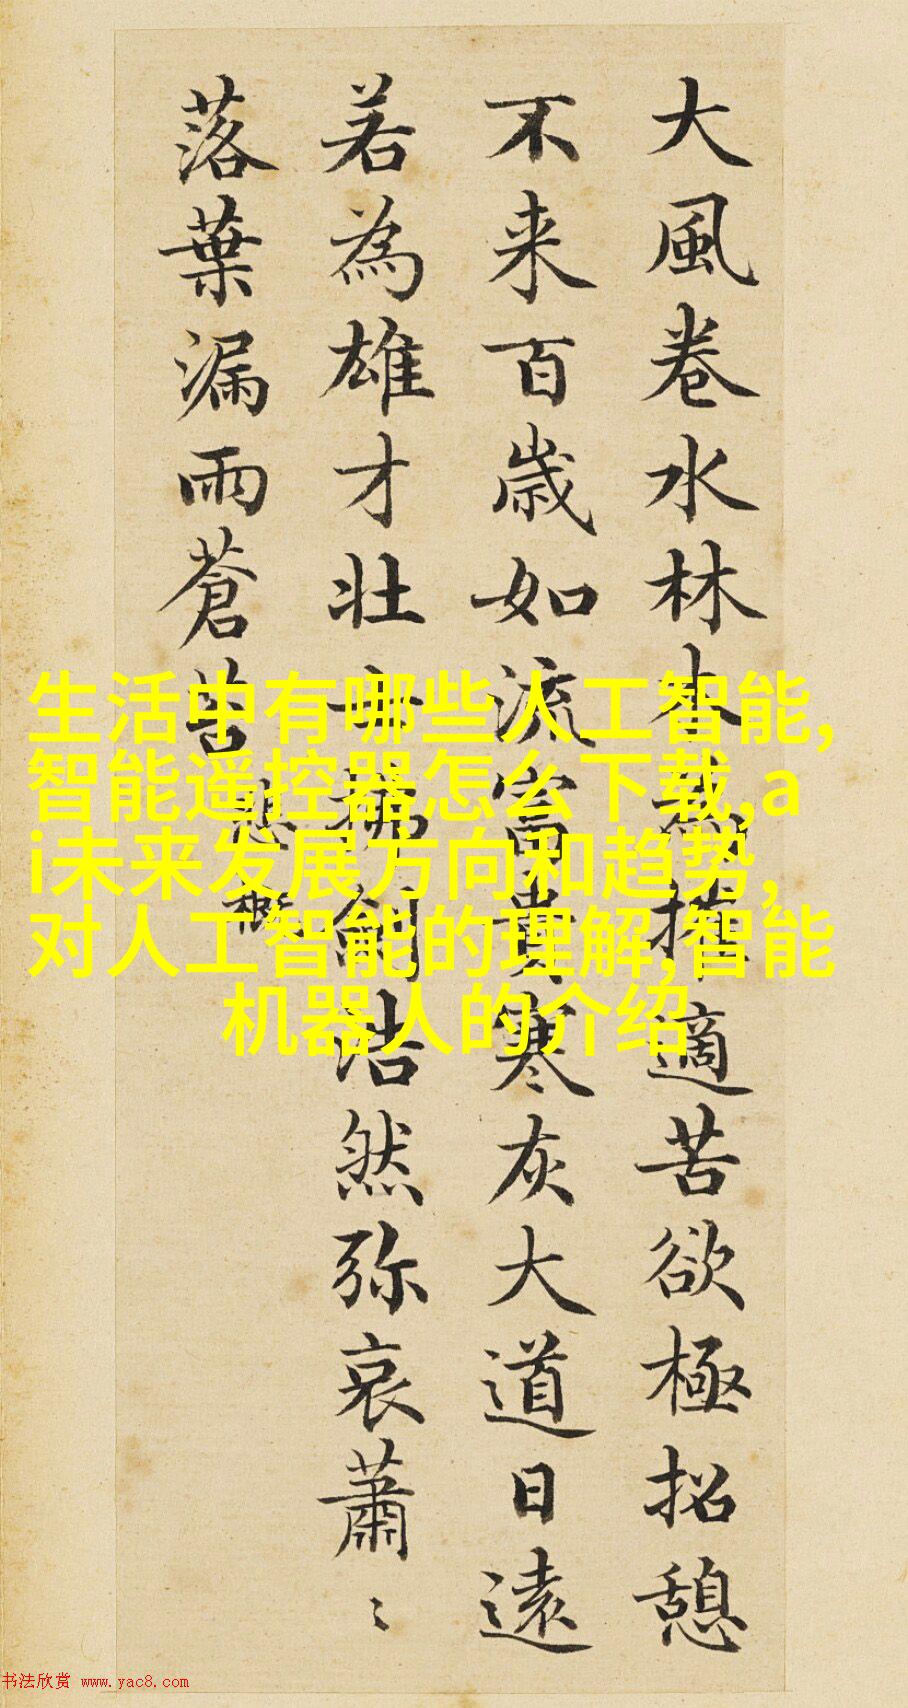 大風卷水林摧適苦欲極招憩
不来百歳如流富貴寒灰大道日遠
若為雄才壮拂劍浩然弥哀蕭〻
落葉漏雨蒼苔
悲概
生活中有哪些人工智能,
智能遥控器怎么下载,a
i未来发展方向和趋势,
对人工智能的理解,智能
机器人的介绍
书法欣赏 www.yac8.com